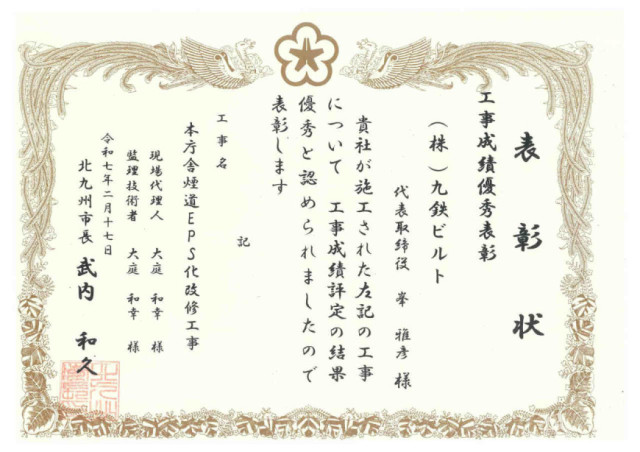 表彰状
工事成績優秀表彰
（株）九鉄ビルト
代表取締役 峯 雅彦 様
貴社が施工された左記の工事
について 工事成績評定の結果
優秀と認められましたので
表彰します
記
工事名
本庁舎煙道EPS化改修工事
現場代理人 大庭 和幸 様
監理技術者 大庭 和幸 様
令和七年二月十七日
北九州市長 武内 和久